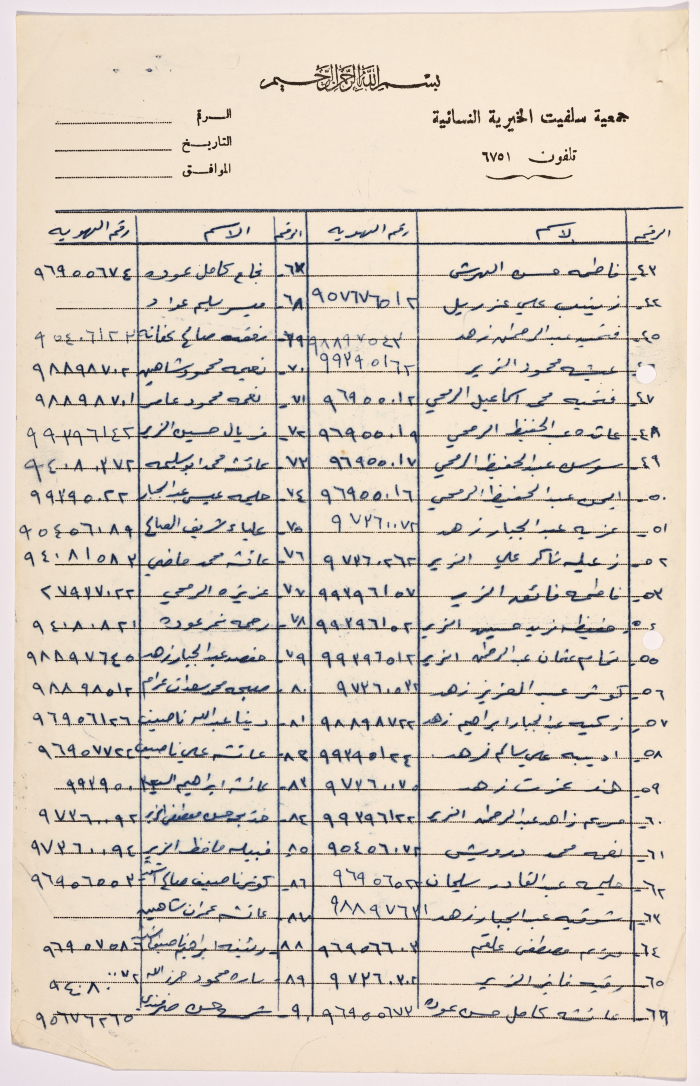 بسم الله الرحمن الرحيم
جمعية سلفيت الخيرية النسائية
تلفون ٦٧٥١
الـــرقم
التاريــخ
الموافــق
الرقم الاسم رقم الهويه الرقم الاسم رقم الهويه
٤٣- فاطمه حسن الهرش ٦٧- نجاح كامل عوده ٩٦٩٥٥٦٧٤
٤٤- زينب علي عزريل ٩٥٧٦٧٦٥١٢ ٦٨- ميسر سليم عواد
٤٥- فتحيه عبد الرحمن زهد ٩٨٨٩٧٥٤٣ ٦٩- صالح
عيشه محمود الزير ٩٩٣٩٥١٦٢ ٧٠- نعيمه محمود شاهين ٩٨٨٩٨٧٠٢
٤٧- فتحيه محمد اسماعيل الرمحي ٩٦٩٥٥٠١٢ ٧١- نعمه محمود عامر ٩٨٨٩٨٧٠١
٤٨- عائده عبد الحفيظ الرمحي ٩٦٩٥٥٠١٩ ٧٢- فريال حسين الزير ٩٩٣٩٦١٤٢
٤٩- سوسن عبد الحفيظ الرمحي ٩٦٩٥٥٠١٧ ٧٣- عائشه محمد ابو سليمه ٩٤٠٨٠٣٧٢
٥٠- ايمن عبد الحفيظ الرمحي ٩٦٩٥٥٠١٦ ٧٤- حليمه عيسى عبد الجبار ٩٩٣٩٥٠٢٢
٥١- عزيه عبد الجبار زهد ٩٧٣٦٠٠٧٢ ٧٥- علياء شريف الصالح ٩٥٤٥٦٠٨٩
٥٢- شاكر علي الزير ٩٧٣٦٠٢٦٢ ٧٦- عائشه محمد ماضي ٩٤٠٨١٥٨٣
٥٣- فاطمه فائق الزير ٩٩٣٩٦١٥٧ ٧٧- عزيزه الرمحي ٢٧٩٣٧٠٢٢
حفيظه زيد حسين الزير ٩٩٣٩٦١٥٢ ٧٨- رحمه نمر عوده ٩٤٠٨٠٨٢١
٥٥- تمام عثمان عبد الرحمن الزير ٩٩٣٩٦٥١٢ ٧٩- حفصه عبد الجبار زهد ٩٨٨٩٧٦٤٥
٥٦- كوثر عبد العزيز زهد ٩٧٣٦٠٥٣٢ ٨٠- صبحه محمد سعدات عزام ٩٨٨٩٨٥١٢
٥٧- زكيه عبد الجبار ابراهيم زهد ٩٨٨٩٨٧٢٢ ٨١- دينا عبد الله ناصيف ٩٦٩٥٦١٢٦
٥٨- اديبه علي سالم زهد ٩٩٣٩٥١٢٤ ٨٢- عائشه علي ناصيف ٩٦٩٥٧٧٢٢
٥٩- هند عزت زهد ٩٧٣٦٠٠٧٠ ٨٣- عائشه ابراهيم ٩٩٣٩٥٠
٦٠- مريم زاهد عبد الرحمن الزير ٩٩٣٩٦١٢٢ ٨٤- خديجه حسن مصطفى الزير ٩٧٣٦٠٠٩٢
٦١- نعمه محمد درويش ٩٥٤٥٦٠٧٢ ٨٥- نبيله حافظ الزير ٩٧٣٦٠٠٩٤
٦٢- حليمه عبد القادر سليمان ٩٦٩٥٦٥٢٢ ٨٦- كوثر ناصيف صالح ٩٦٩٥٦٥٥٣
٦٣- شوقيه عبد الجبار زهد ٩٨٨٩٧٦٣١ ٨٧- عائشه عمران شاهين
٦٤- مريم مصطفى علقم ٩٦٩٥٦٦٠٣ ٨٨- ابراهيم ناصيف ٩٦٩٥٧٥٨
٦٥- رقيه فايز الزير ٩٧٣٦٠٣٠٢ ٨٩- ساره محمود حرزالله ٩٤٠٨٠٠٧٢
٦٦- عائشه كامل حسن عوده ٩٦٩٥٥٦٧٣ ٩٠- حسن ٩٥٦٧٦٢٦٥